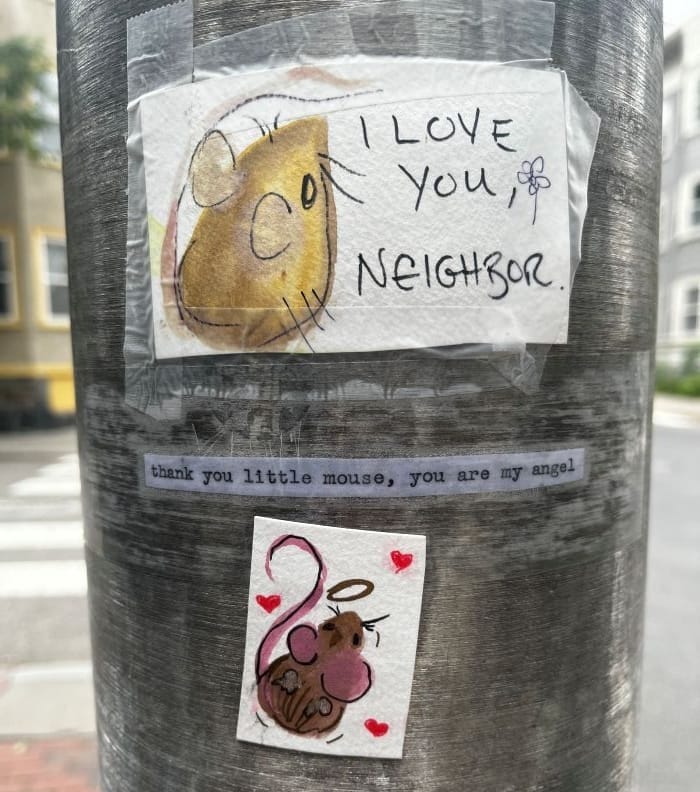 I LOVE
YOU,
NEIGHBOR.
thank you little mouse, you are my angel